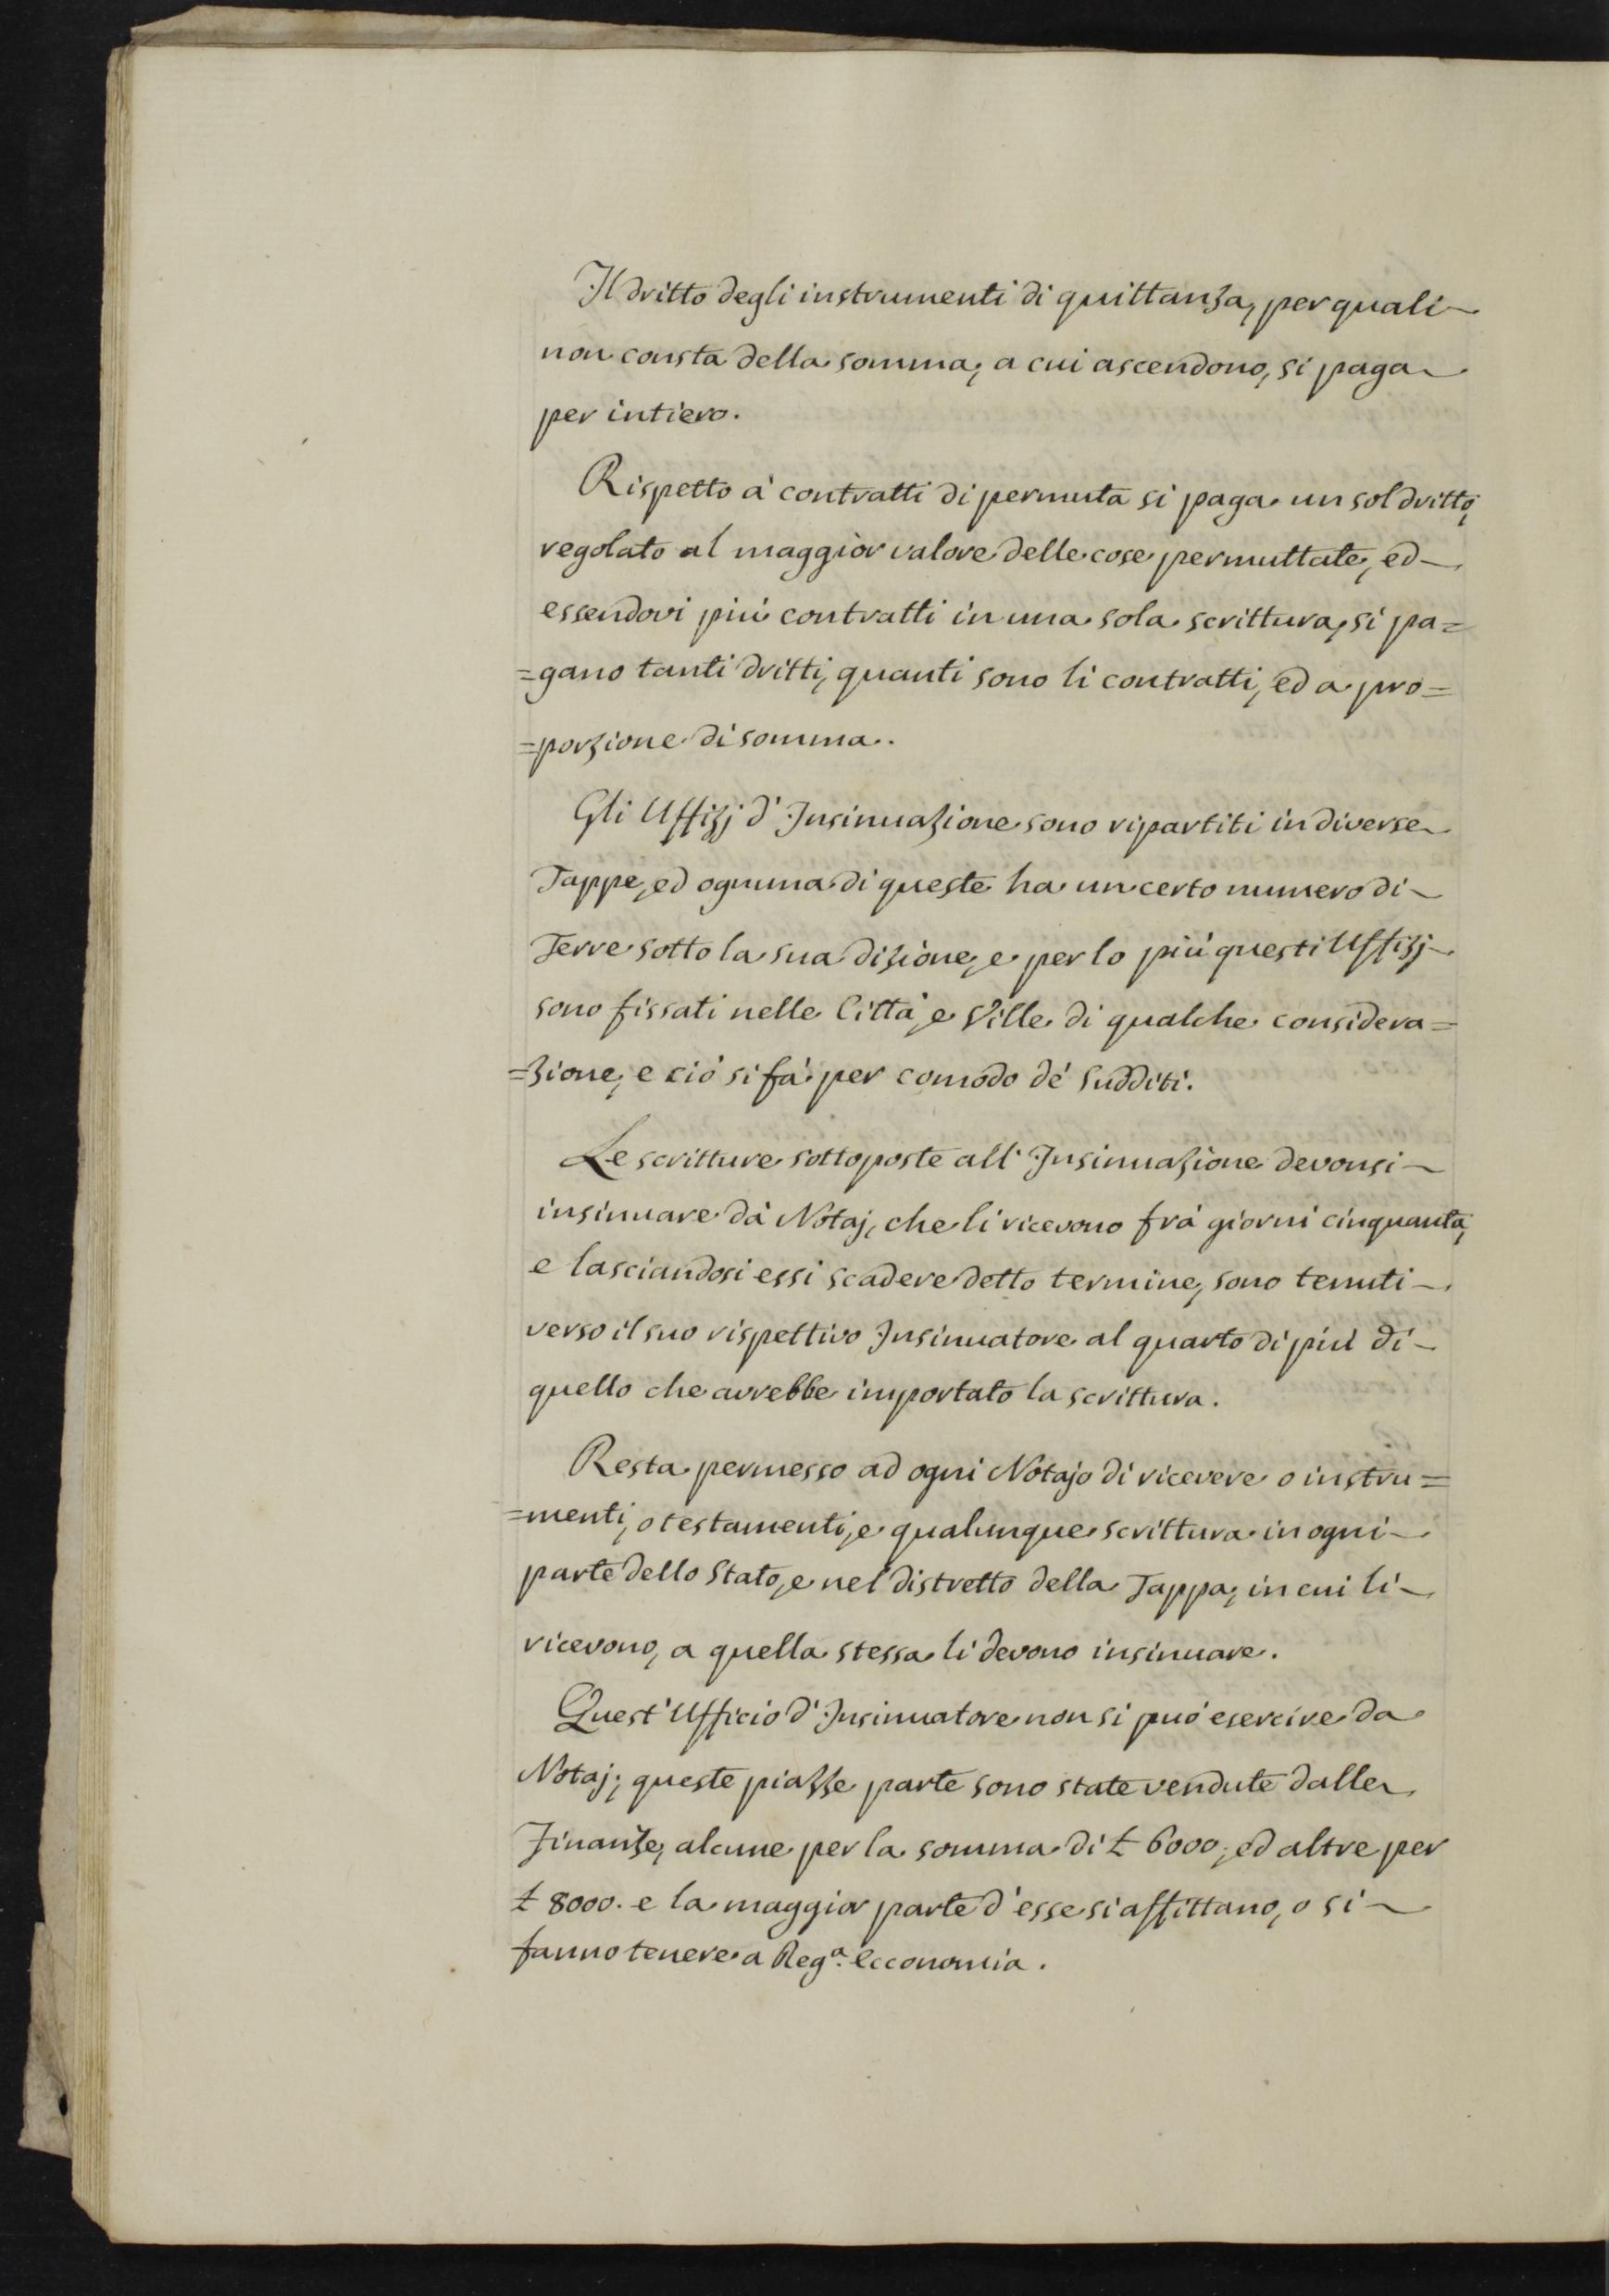 Il dritto degli instrumenti di quittanza, per quali
non consta della somma, a cui ascendono, si paga
per intiero.
Rispetto à contratti di permuta si paga un sol dritto,
regolato al maggior valore delle cose permuttate, ed
essendovi più contratti in una sola scrittura, si pa=
=gano tanti dritti, quanti sono li contratti, ed a pro=
=porzione di somma.
Gli Uffizj d'Insinuazione sono ripartiti in diverse
Tappe, ed ognuna di queste ha un certo numero di
Terre sotto la sua dizione, e per lo più questi Uffizj
sono fissati nelle Città, e Ville di qualche considera=
=zione, e ciò si fà per comodo dè Sudditi.
Le scritture sottoposte all'Insinuazione devonsi
insinuare dà Notaj, che li ricevono frà giorni cinquanta,
e lasciandosi essi scadere detto termine, sono tenuti
verso il suo rispettivo Insinuatore al quarto di più di
quello che avrebbe importato la scrittura.
Resta permesso ad ogni Notajo di ricevere o instru=
=menti, o testamenti, e qualunque scrittura in ogni
parte dello Stato, e nel distretto della Tappa, in cui li
ricevono, a quella stessa li devono insinuare.
Quest'Ufficio d'Insinuatore non si può esercire da
Notaj; queste piazze parte sono state vendute dalle
Finanze, alcune per la somma di £ 6000, ed altre per
£ 8000. e la maggior parte d'esse si affittano, o si
fanno tenere a Reg.ª Economia.